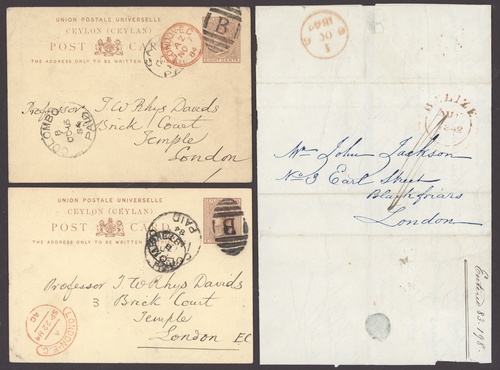 UNION POSTALE UNIVERSELLE
CEYLON (CEYLAN)
POST CARD
THE ADDRESS ONLY TO BE WRITTEN
EIGHT CENTS
B
LONDON E.C
PAID
84
COLOMBO
PAID
Professor T W Rhys Davids
Brick Court
Temple
London
UNION POSTALE UNIVERSELLE
CEYLON (CEYLAN)
POST CARD
THE ADDRESS ONLY TO BE WRITTEN
B
PAID
Professor T W Rhys Davids
3 Brick Court
Temple
London EC
LONDON E.C
A
SP 22 84
1842
BELIZE
1842
Mr John Jackson
No 3 Earl Street
Blackfriars
London
Entd 83.198.